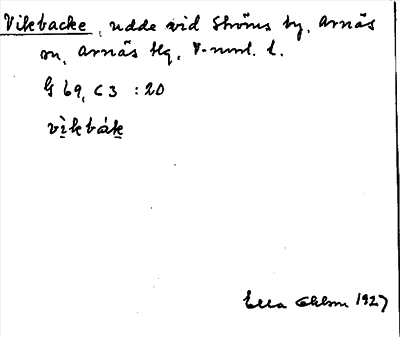 Vikbacke, udde vid Ströms by, Arnäs
sn, Arnäs tlg, V-norrl. l.
G 69, C 3 : 20
vìkbák
Ella Ohlson 1927